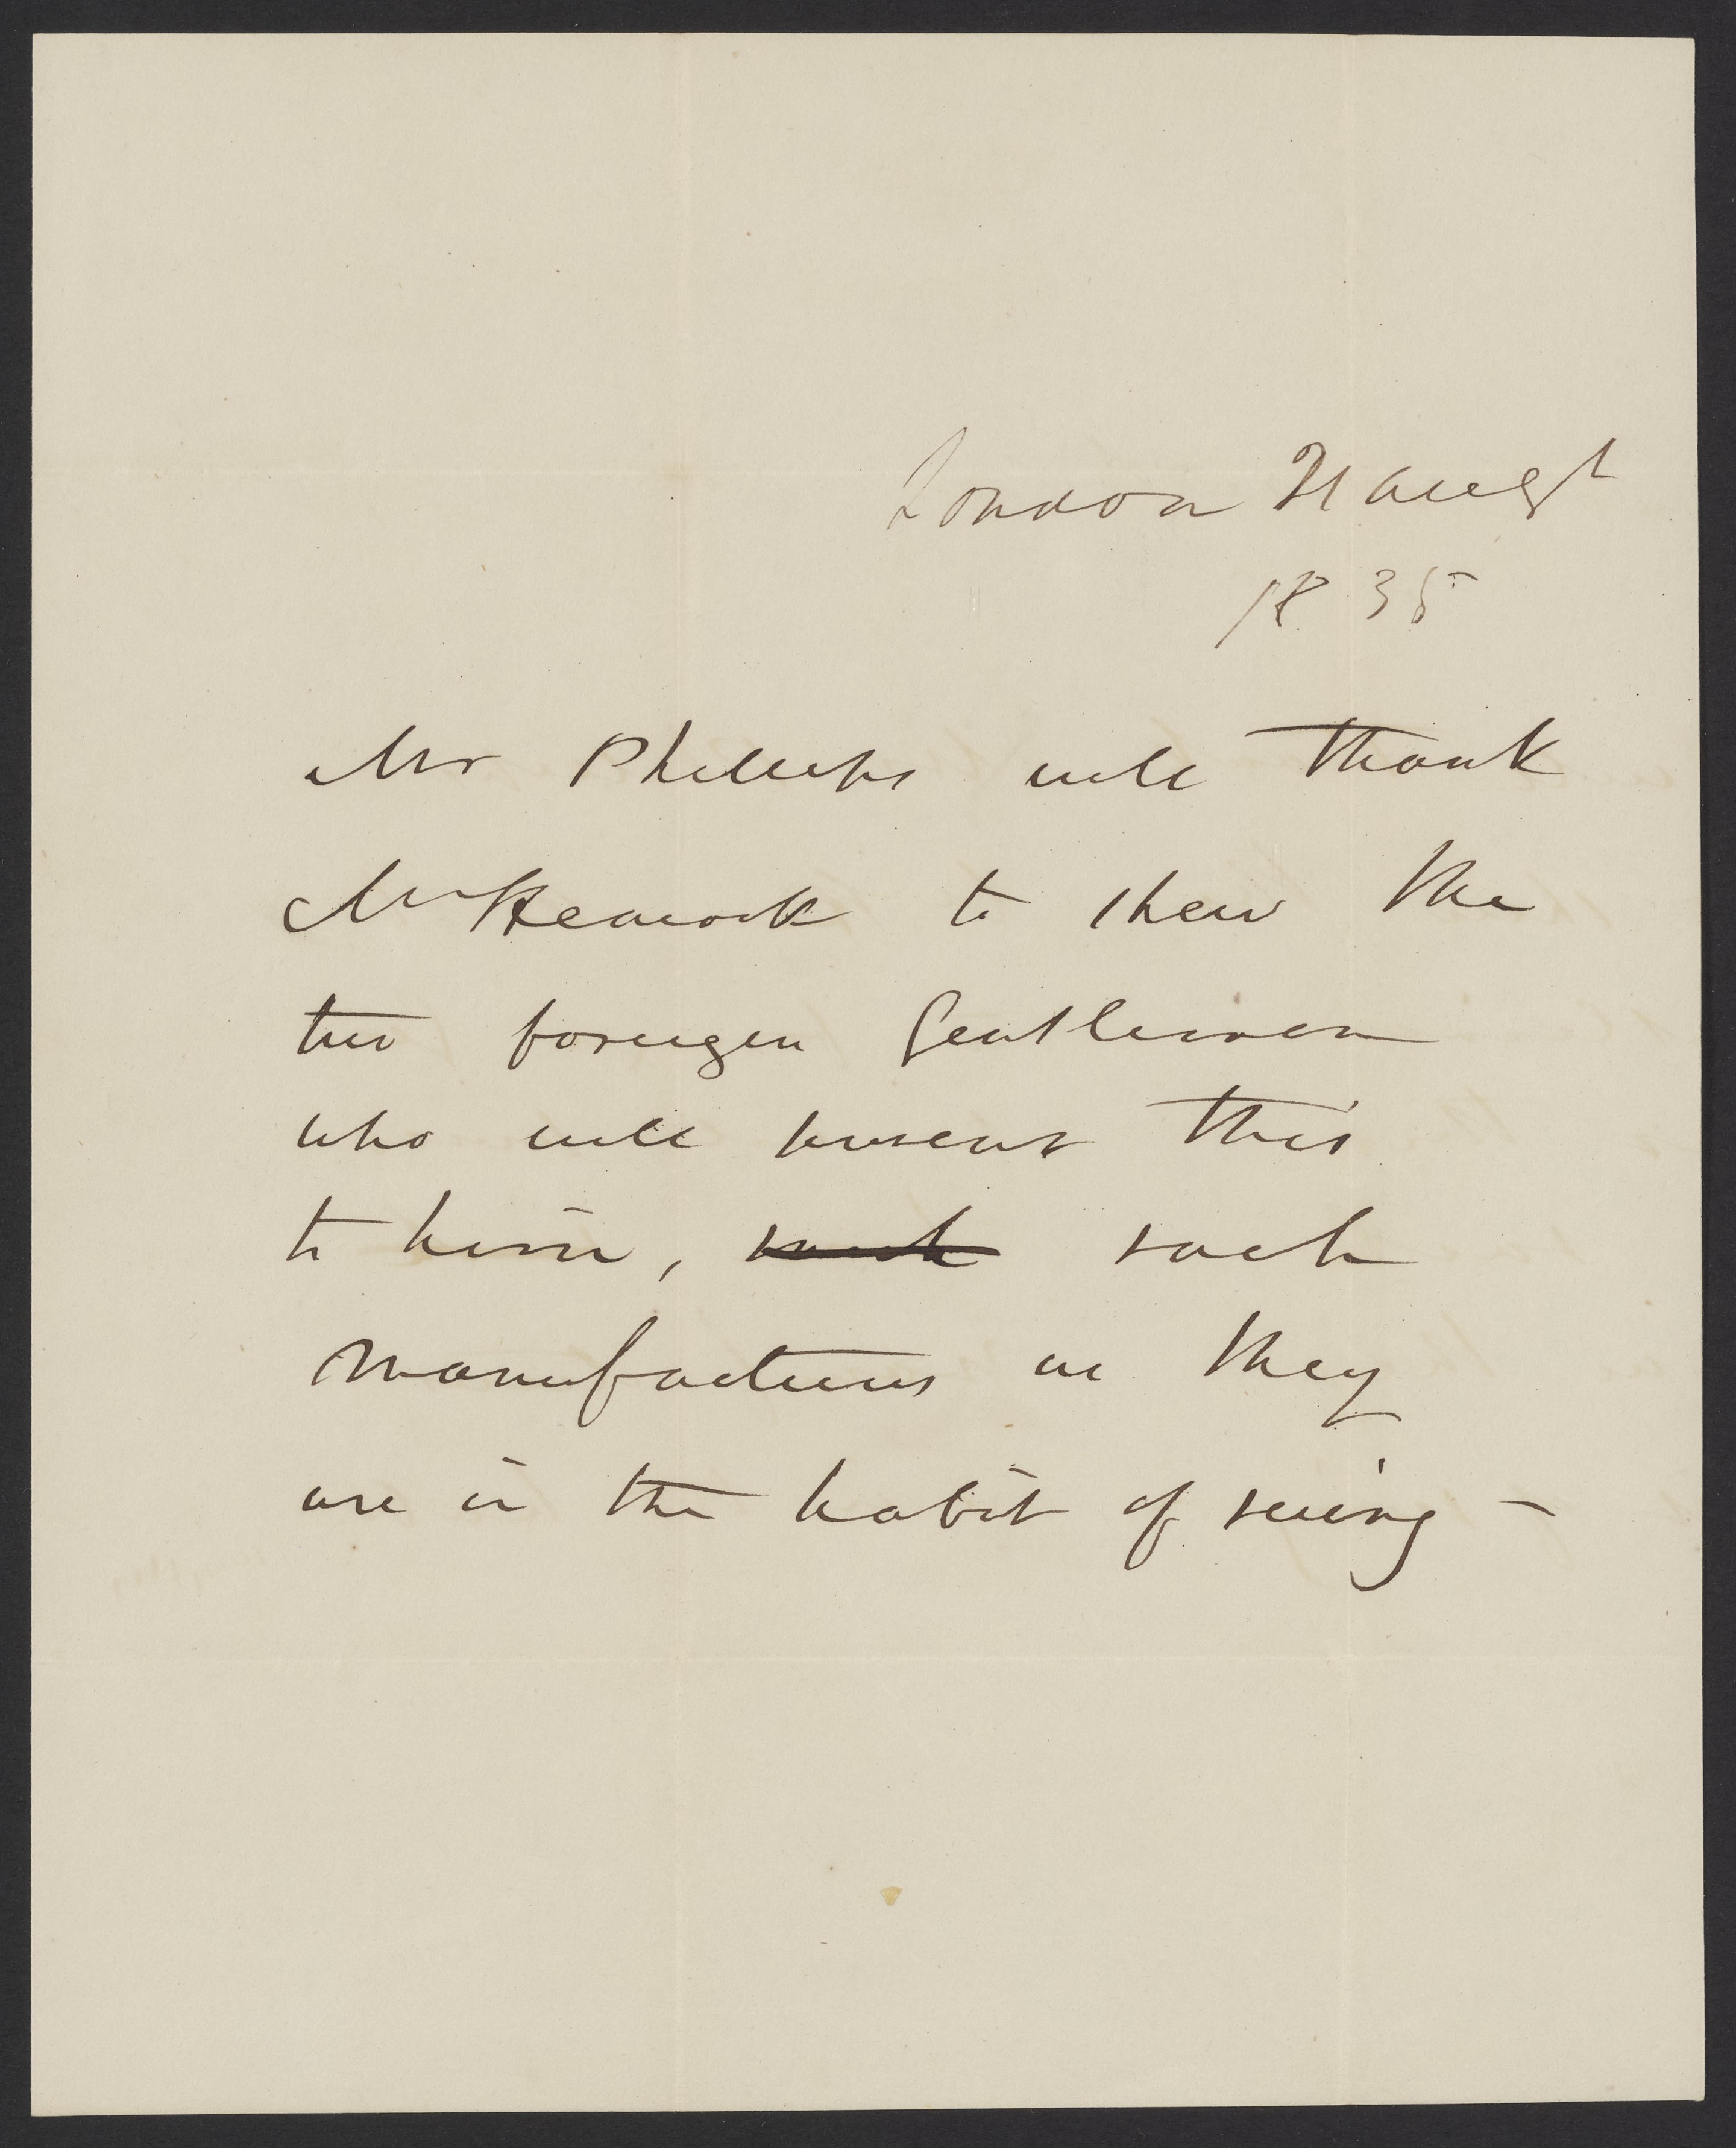 London 21 Augst
1835
Mr Phillips will thank
Mr Heacock to shew the
two foreigen Gentlemen
who will present this
to him, such such
manufactures as they
are in the habit of seeing -